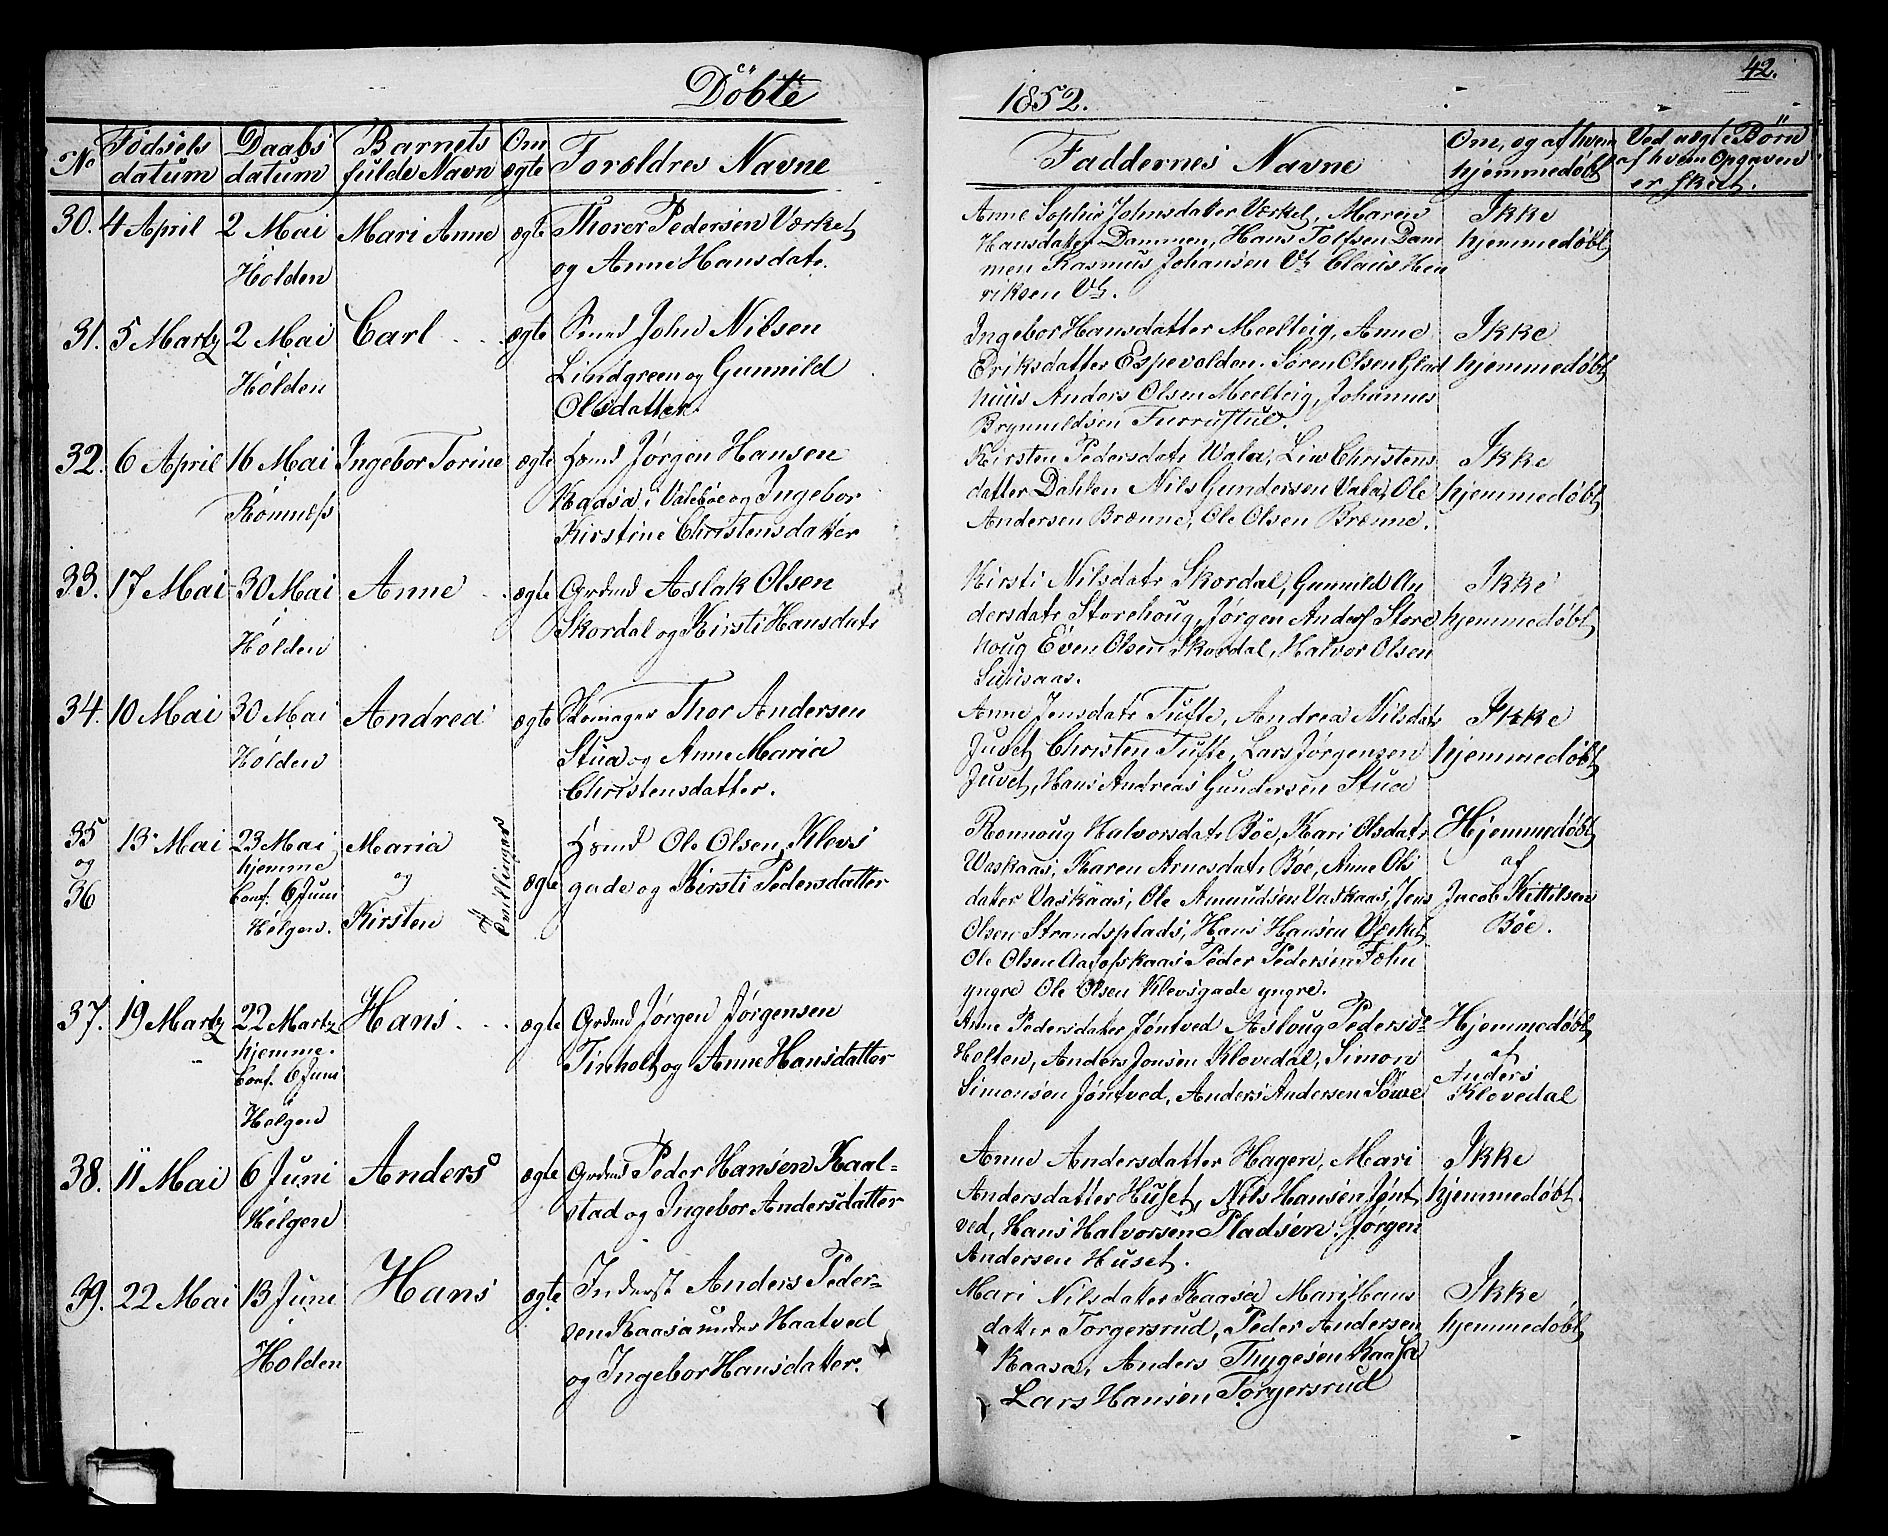 Döbte
1852.
42.
No
Födsels datum
Daabs datum
Barnets fulde Navn
Om ægte
Forældres Navne
Faddernes Navne
Om, og af hvem hjemmedöbt
Ved uægte Börn af hvem Opgaven er skeet.
30. 4 April 2 Mai Mari Anne ægte Thorer Pedersen Værket
Holden og Anne Hansdatr.
Anne Sophie Johnsdatter Værket, Maren
Hansdatter Dammen, Hans Tolfsen Dam
men Rasmus Johansen Vk Claus Hen
riksen Vk.
Ikke
hjemmedöbt
31. 5 Martz 2 Mai Carl ægte Smed John Nilsen
Holden Lindgreen og Gunnild
Olsdatter
Ingebor Hansdatter Meelteig, Anne
Eriksdatter Espevolden. Sören Olsen Glad
huus Anders Olsen Meelteig, Johannes
Brynnildsen Furrustul.
Ikke
hjemmedöbt
32. 6 April 16 Mai Ingebor Torine ægte Hsmd Jørgen Hansen
Romnæss Kaasa i Valeböe og Ingebor
Kirstine Christensdatter
Kirsten Pedersdatr Vala, Liv Christens
datter Dahlen Nils Gundersen Vala, Ole
Andersen Brænne, Ole Olsen Brænne.
Ikke
hjemmedöbt
33. 17 Mai 30 Mai Anne ægte Grdmd Aslak Olsen
Holden Skordal og Kirsti Hansdatr
Kirsti Nilsdatr Skordal, Gunnild An
dersdatr Storehoug, Jørgen Anders Store
houg Even Olsen Skordal, Halvor Olsen
Ikke
hjemmedöbt
34. 10 Mai 30 Mai Andrea ægte Skomager Thor Andersen
Holden Stua og Anne Maria
Christensdatter.
Anne Jensdatr Tufte, Andrea Nilsdatr
Juvet Christen Tufte, Lars Jørgensen
Juvet, Hans Andreas Gundersen Stua
Ikke
hjemmedöbt
35 og 36 13 Mai 23 Mai hjemme Conf. 6 Juni Helgen. Maria og Kirsten Tvillinger ægte Hsmd Ole Olsen Klevs
gade og Kirsti Pedersdatter
Ronnoug Halvorsdatr Böe, Kari Olsdatr
Vaskaas, Karen Arnesdatr Böe, Anne Ols
datter Vaskaas, Ole Amundsen Vaskaas, Jens
Olsen Strandsplads, Hans Hansen Værket
Ole Olsen Aarofskaas Peder Pedersen Fæhn
yngre Ole Olsen Klevsgade yngre.
Hjemmedöbt
af
Jacob Kittilsen
Böe.
37. 19 Martz 22 Martz hjemme. Conf. 6 Juni Helgen Hans ægte Grdmd Jørgen Jørgensen
Tinholt og Anne Hansdatter
Anne Pedersdatter Jøntved Asloug Pedersd
Holten, Anders Jonsen Klovedal, Simon
Simonsen Jøntved, Anders Andersen Söwe
Hjemmedöbt
af
Anders
Klovedal
38. 11 Mai 6 Juni Anders ægte Grdmd Peder Hansen Kaal-
Helgen stad og Ingebor Andersdatter
Anne Andersdatter Hagen, Mari
Andersdatter Huset, Nils Hansen Jønt
ved, Hans Halvorsen Pladsen. Jørgen
Andersen Huset.
Ikke
hjemmedöbt.
39. 22 Mai 13 Juni Hans ægte Inderst Anders Peder-
Holden sen Kaasa under Haatved
og Ingebor Hansdatter.
Mari Nilsdatter Kaasa Mari Hans
datter Torgersrud, Peder Andersen
Kaasa, Anders Thygesen Kaasa
Lars Hansen Torgersrud
Ikke
hjemmedöbt